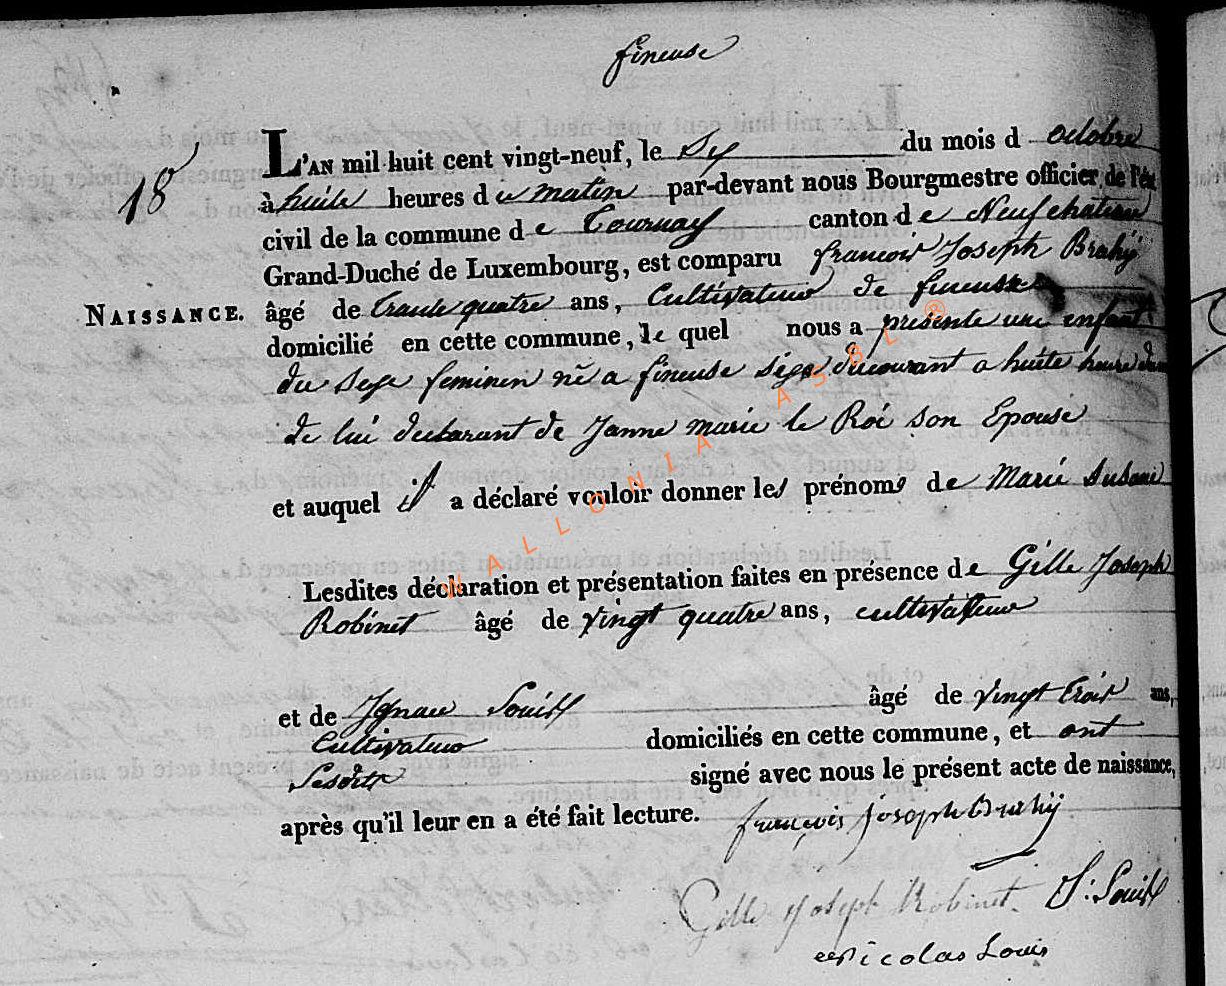 fineuse
18
L'AN mil huit cent vingt-neuf, le Six du mois d octobre
à huite heures du matin par-devant nous Bourgmestre officier de l'éta
civil de la commune de Tournay canton de Neufchateau
Grand-Duché de Luxembourg, est comparu françois Joseph Brahÿ
NAISSANCE.
âgé de trante quatre ans, Cultivateur de fineuse
domicilié en cette commune, le quel nous a présenté une enfant
du sexe feminin né a fineuse du courant a huite heure du
de lui declarant de Janne marie le Roi son Epouse
et auquel il a déclaré vouloir donner les prénoms de Marie Susane
Lesdites déclaration et présentation faites en présence de Gille Joseph
Robinet âgé de vingt quatre ans, cultivateur
et de Ignace Louis âgé de vingt trois ans,
Cultivateur domiciliés en cette commune, et ont
Lesdits signé avec nous le présent acte de naissance,
après qu'il leur en a été fait lecture. françois joseph Brahÿ
Gille joseph Robinet. J: Louis
Nicolas Louis
WALLONIA ASBL ®